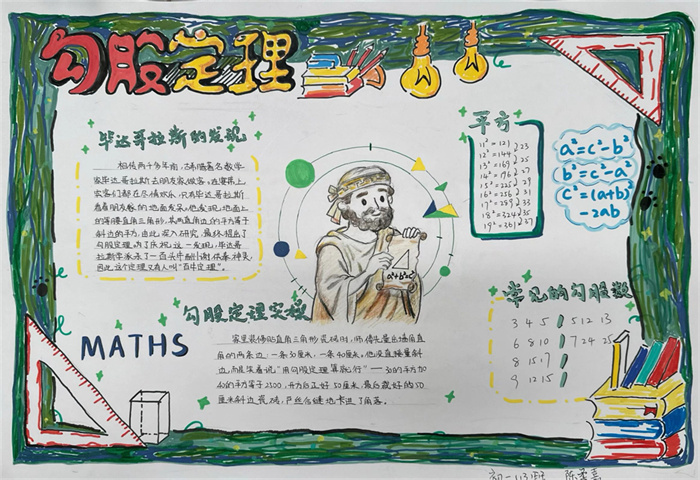 勾股定理
毕达哥拉斯的发现
相传两千多年前,古希腊著名数学
家毕达哥拉斯去朋友家做客,在宴席上,
宾客们都在尽情欢乐,只有毕达哥拉斯
看着朋友家的地面发呆,他发现,地面上
的等腰直角三角形,其两直角边的平方等于
斜边的平方,由此,深入研究,最终提出了
勾股定理.为了庆祝这一发现,毕达哥
拉斯学派杀了一百头牛酬谢供奉神灵
因此这个定理又有人叫"百牛定理"。
平方
11²=121
12²=144
13²=169
14²=196
15²=225
16²=256
17²=289
18²=324
19²=361
23
25
27
29
31
33
35
37
a²=c²-b²
b²=c²-a²
c²=(a+b)²
-2ab
a²+b²=c²
勾股定理实操
家里装修贴直角三角形瓷砖时,师傅先量出墙角直
角的两条边,一条30厘米,一条40厘米,他没直接量斜
边,而是笑着说"用勾股定理算就行"——30的平方加
40的平方等于2500,开方后正好50厘米,最后裁好的50
厘米斜边瓷砖,严丝合缝地卡进了角落。
MATHS
常见的勾股数
3 4 5 5 12 13
6 8 10 7 24 25
8 15 17
9 12 15